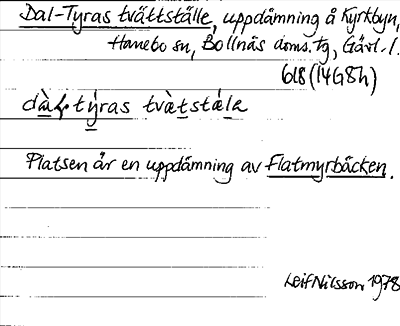 Dal-Tyras tvättställe, uppdämning å Kyrkbyn,
Hanebo sn, Bollnäs doms. tg, Gävl. l.
618 (14G8h)
dàl týras tvætstæ̀lə
Platsen är en uppdämning av Flatmyrbäcken.
Leif Nilsson 1978